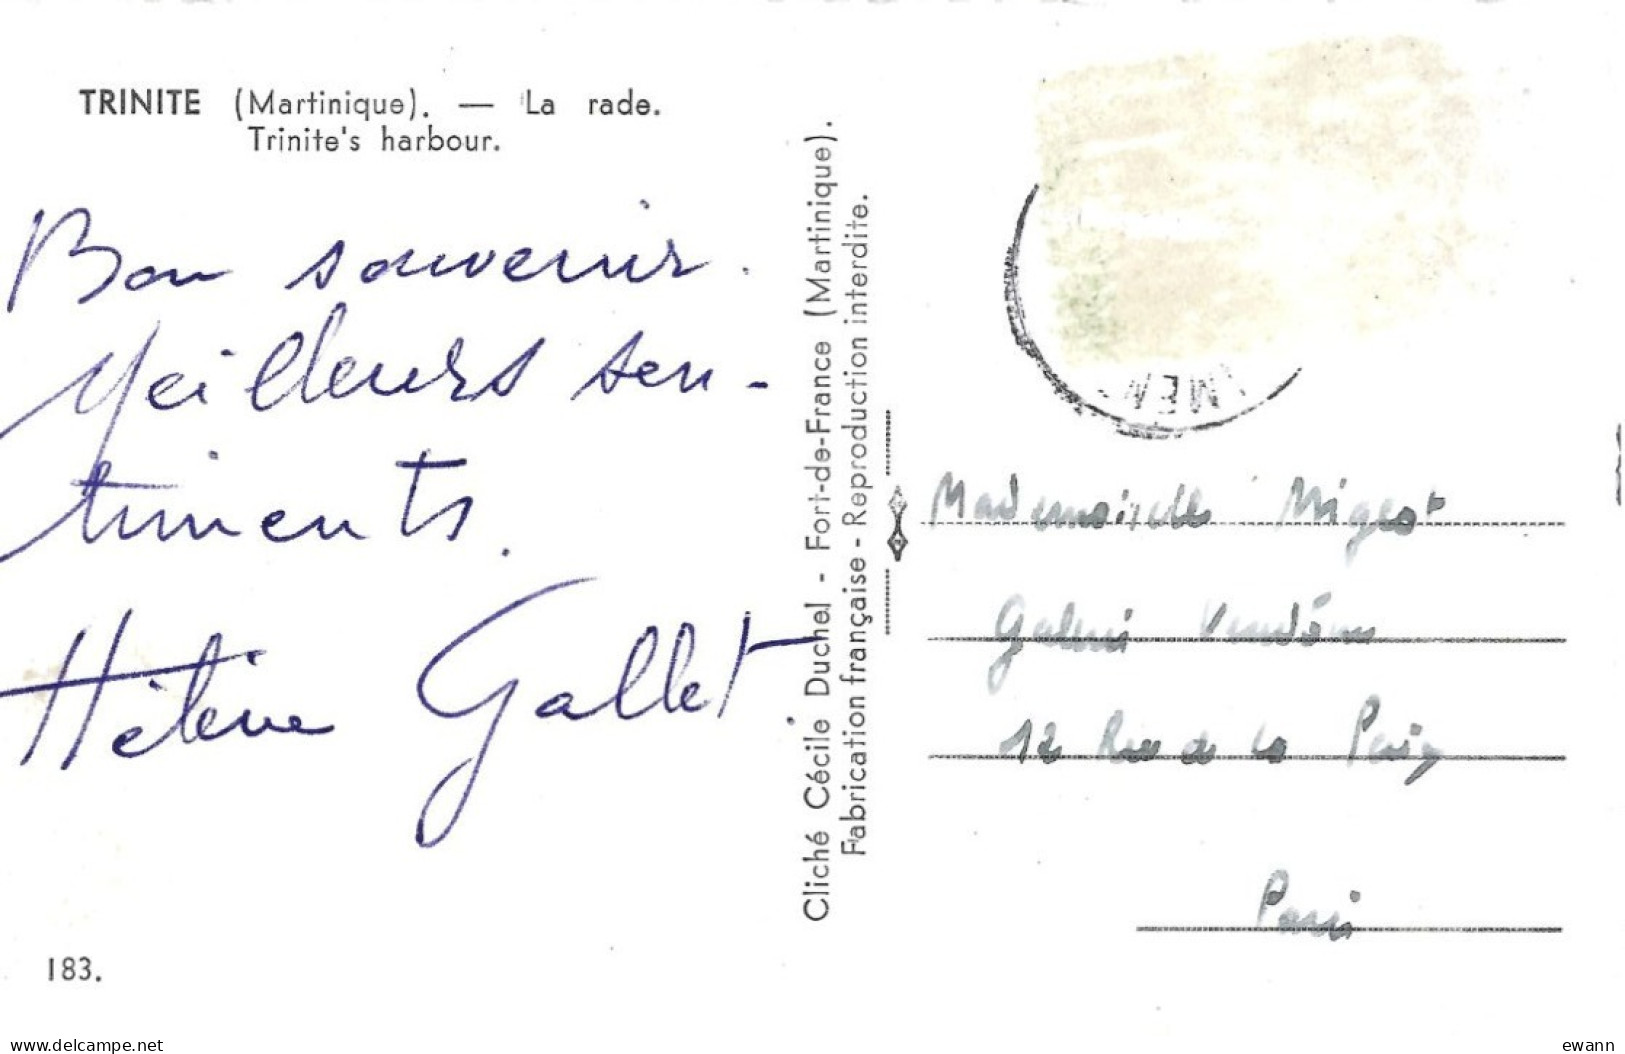 TRINITE (Martinique). — La rade.
Trinite's harbour.
Bon souvenir.
Meilleurs sen-
timents.
Hélène Gallet
183.
Cliché Cécile Duchel - Fort-de-France (Martinique).
Fabrication française - Reproduction interdite.
MEN
Mademoiselle Migeot
Galerie Vendôme
12 Rue de la Paix
Paris
www.delcampe.net
ewann